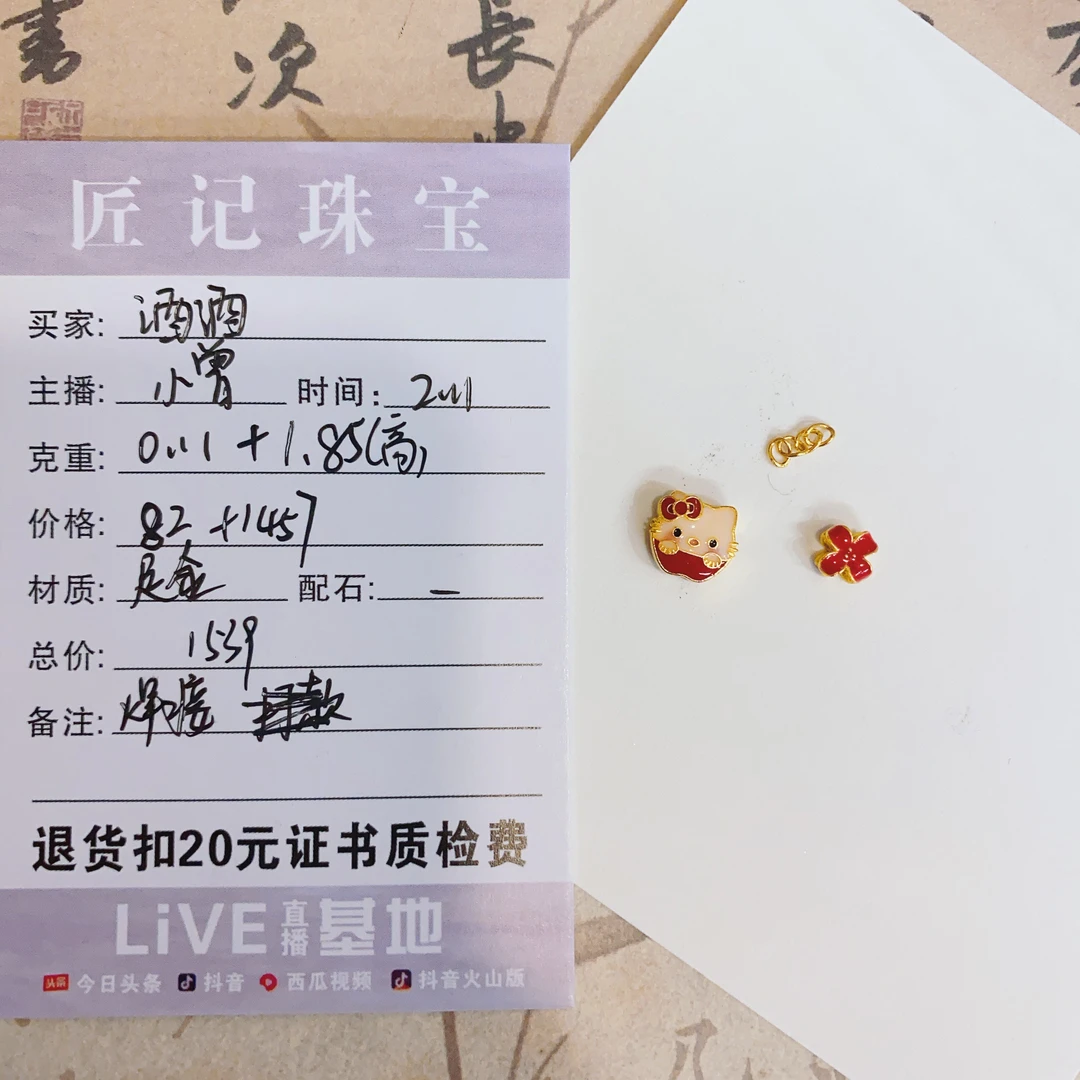 次
長
匠记珠宝
买家: 酒酒
主播: 小曾 时间: 2.11
克重: 0.11 + 1.85(高)
价格: 82 + 1457
材质: 足金 配石: -
总价: 1539
备注: 焊接
退货扣20元证书质检费
LiVE直播基地
今日头条 抖音 西瓜视频 抖音火山版